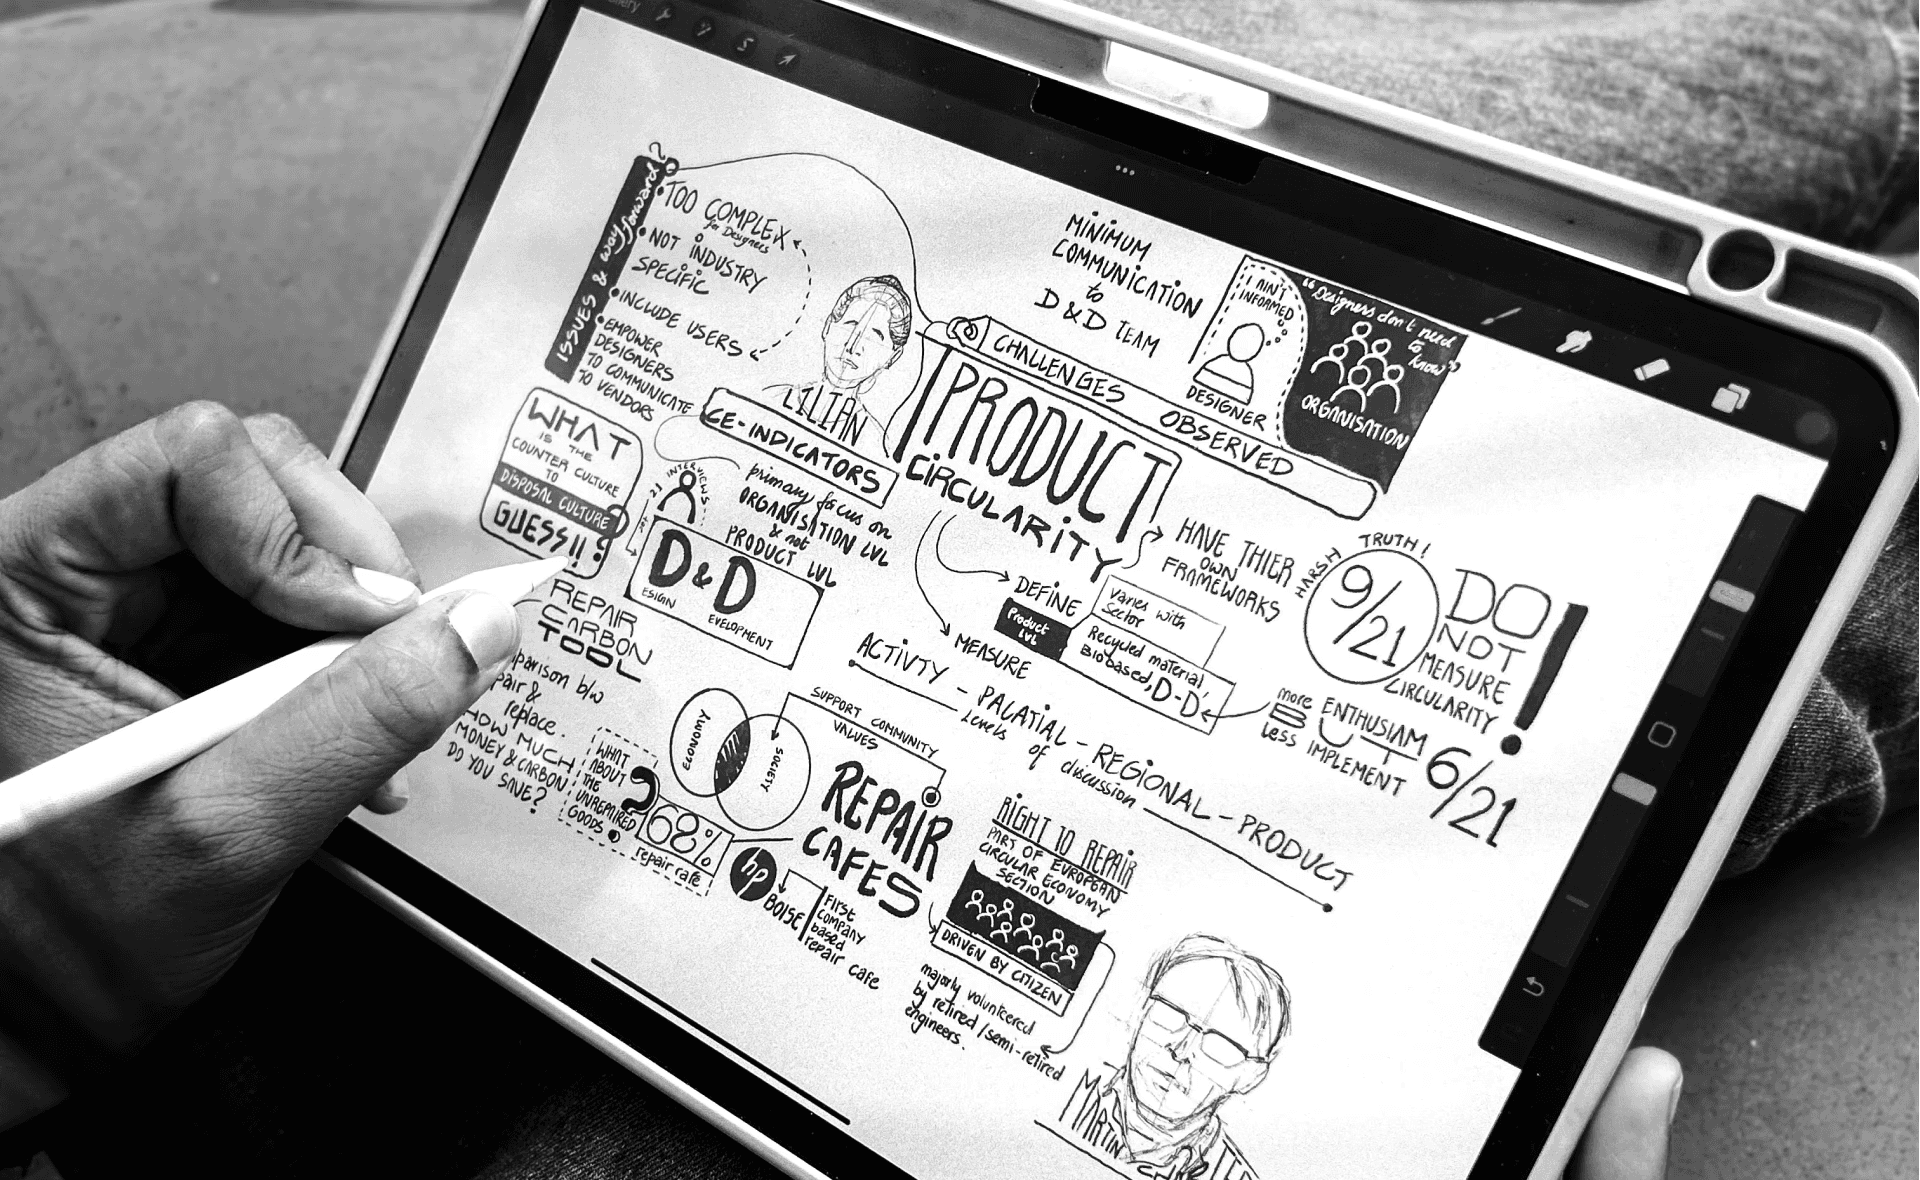 ISSUES & way forward?
• TOO COMPLEX
for Designers
• NOT INDUSTRY
SPECIFIC
• INCLUDE USERS
• EMPOWER
DESIGNERS
TO COMMUNICATE
TO VENDORS
LILIAN
CE-INDICATORS
primary focus on
ORGANISATION LVL
& not
PRODUCT LVL
WHAT
IS THE
COUNTER CULTURE
TO
DISPOSAL CULTURE
GUESS!!
INTERVIEWS
21
D&D
ESIGN
EVELOPMENT
MINIMUM
COMMUNICATION
to
D & D TEAM
I AIN'T
INFORMED
DESIGNER
"Designers don't need
to
know"
ORGANISATION
CHALLENGES OBSERVED
PRODUCT
CIRCULARITY
HAVE THIER
OWN
FRAMEWORKS
DEFINE
Product
LVL
Varies with
Sector
Recycled material,
Biobased, D-D
MEASURE
HARSH TRUTH!
9/21
DO
NOT
MEASURE
CIRCULARITY
!
more ENTHUSIAM
BUT
less IMPLEMENT
6/21
ACTIVTY - PALATIAL - REGIONAL - PRODUCT
Levels of discussion
REPAIR
CARBON
TOOL
b/w
&
replace.
HOW MUCH
MONEY & CARBON
DO YOU SAVE?
WHAT
ABOUT
THE
UNREPAIRED
GOODS
?
68%
repair cafe
ECONOMY
SOCIETY
SUPPORT COMMUNITY
VALUES
REPAIR
CAFES
hp
BOISE
FIRST
COMPANY
based
repair cafe
RIGHT TO REPAIR
PART OF EUROPEAN
CIRCULAR ECONOMY
SECTION
DRIVEN BY CITIZEN
majorly volunteered
by retired/semi-retired
engineers.
MARTIN